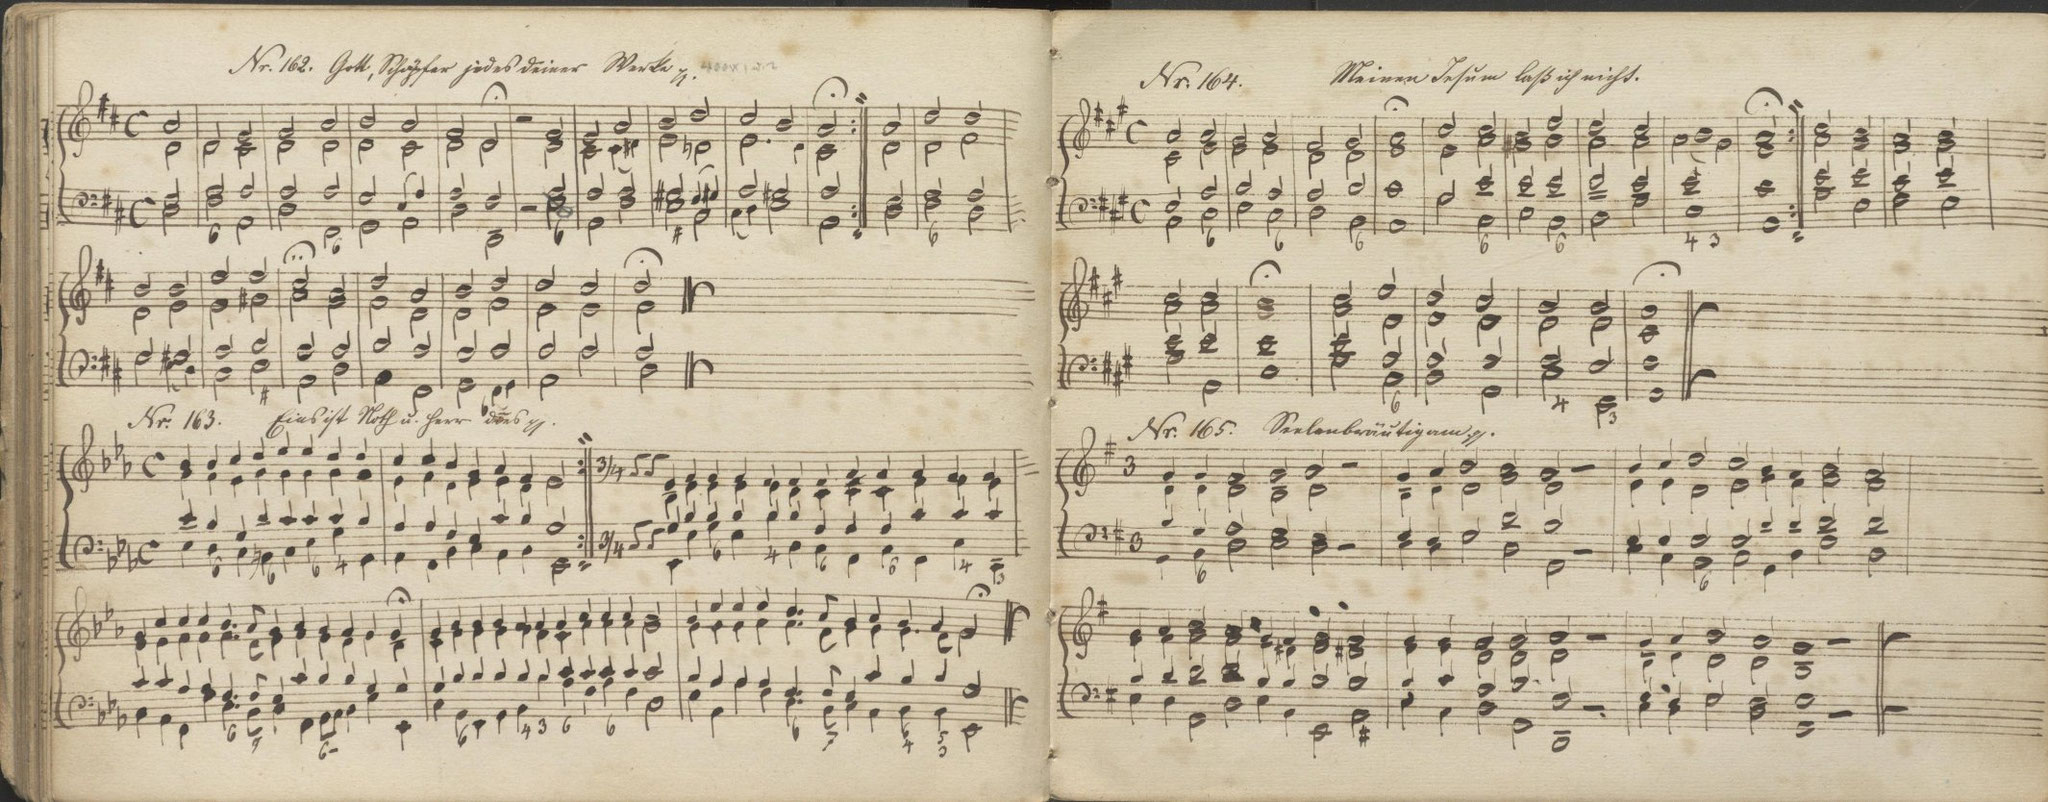 Nr. 162. Gott, Schöpfer jedes deiner Werke p.
Nr. 163. Eins ist Noth u. Herr dies p.
Nr. 164. Meinen Jesum laß ich nicht.
Nr. 165. Seelenbräutigam p.